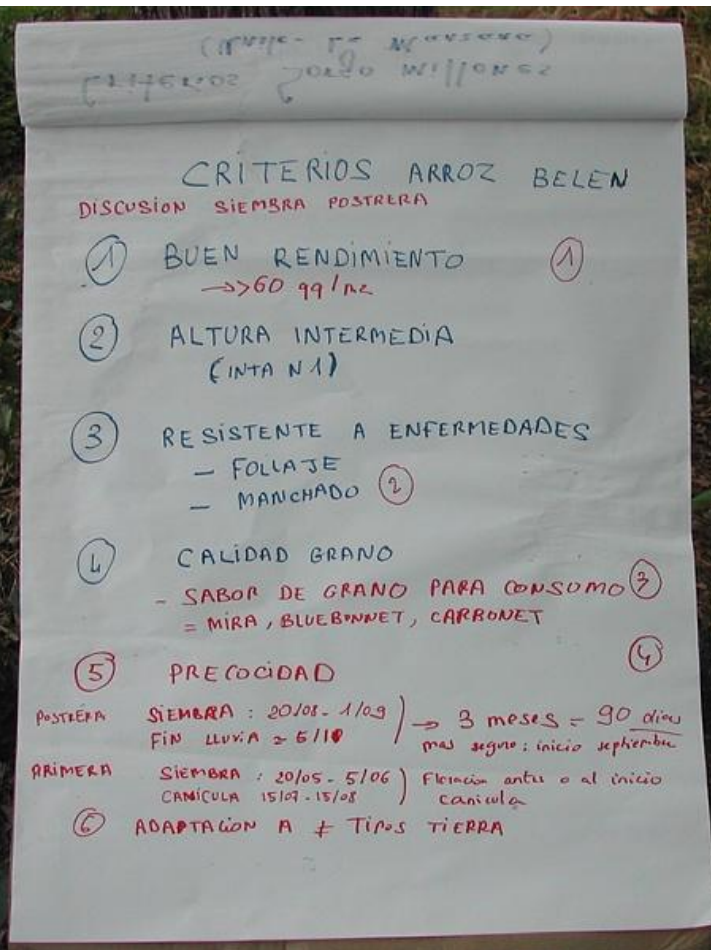 CRITERIOS ARROZ BELEN
DISCUSION SIEMBRA POSTRERA
① BUEN RENDIMIENTO ①
→ >60 qq/mz
② ALTURA INTERMEDIA
(INTA N1)
③ RESISTENTE A ENFERMEDADES
- FOLLAJE
- MANCHADO ②
④ CALIDAD GRANO
- SABOR DE GRANO PARA CONSUMO ③
= MIRA, BLUEBONNET, CARBONET
⑤ PRECOCIDAD ④
POSTRERA SIEMBRA : 20/08 - 1/09 ) → 3 meses = 90 dias
FIN LLUVIA = 5/10 mas seguro : inicio septiembre
PRIMERA SIEMBRA : 20/05 - 5/06 ) Floracion antes o al inicio
CANÍCULA 15/07 - 15/08 canicula
⑥ ADAPTACION A ≠ TIPOS TIERRA